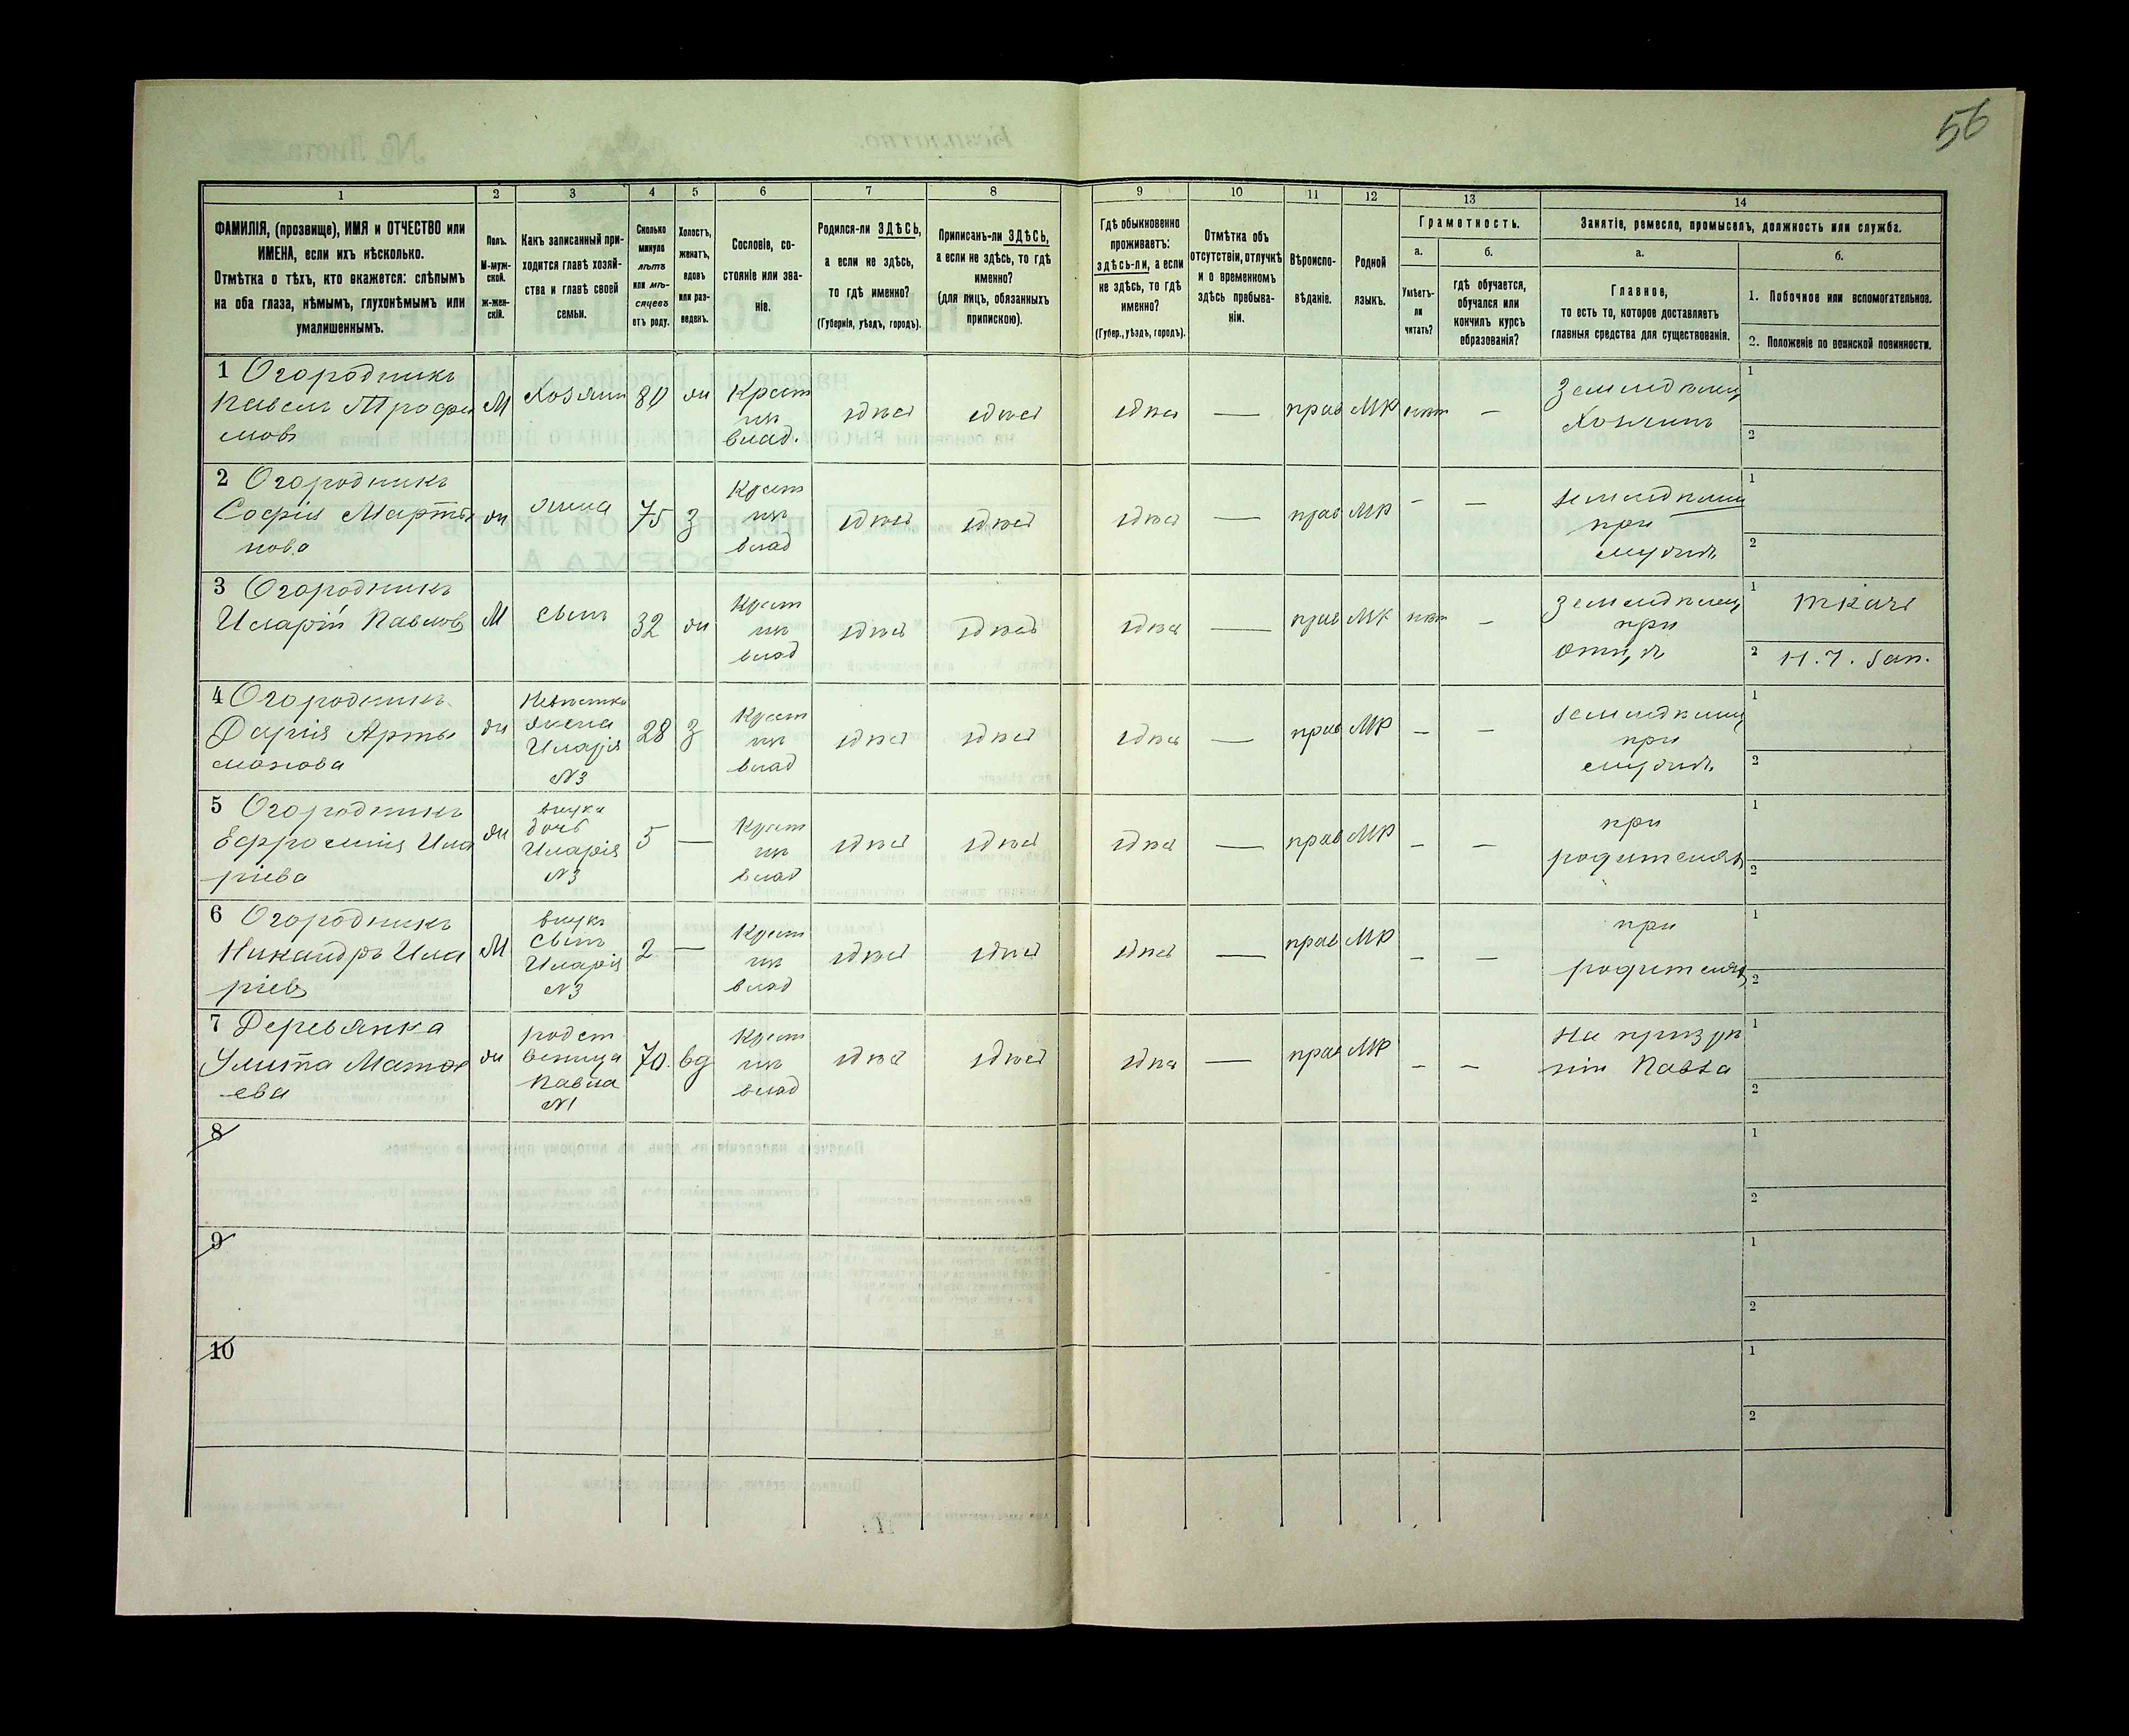 56
1 2 3 4 5 6 7 8 9 10 11 12 13 14
ФАМИЛІЯ, (прозвище), ИМЯ и ОТЧЕСТВО или
ИМЕНА, если ихъ нѣсколько.
Отмѣтка о тѣхъ, кто окажется: слѣпымъ
на оба глаза, нѣмымъ, глухонѣмымъ или
умалишеннымъ.
Полъ.
М-муж-
ской.
ж-жен-
скій.
Какъ записанный при-
ходится главѣ хозяй-
ства и главѣ своей
семьи.
Сколько
минуло
лѣтъ
или мѣ-
сяцевъ
отъ роду.
Холостъ,
женатъ,
вдовъ
или раз-
веденъ.
Сословіе, со-
стояніе или зва-
ніе.
Родился-ли ЗДѢСЬ,
а если не здѣсь,
то гдѣ именно?
(Губернія, уѣздъ, городъ).
Приписанъ-ли ЗДѢСЬ,
а если не здѣсь, то гдѣ
именно?
(для лицъ, обязанныхъ
припискою).
Гдѣ обыкновенно
проживаетъ:
здѣсь-ли, а если
не здѣсь, то гдѣ
именно?
(Губер., уѣздъ, городъ).
Отмѣтка объ
отсутствіи, отлучкѣ
и о временномъ
здѣсь пребыва-
ніи.
Вѣроиспо-
вѣданіе.
Родной
языкъ.
Грамотность.
а.
Умѣетъ-
ли
читать?
б.
гдѣ обучается,
обучался или
кончилъ курсъ
образованія?
Занятіе, ремесло, промыселъ, должность или служба.
а.
Главное,
то есть то, которое доставляетъ
главныя средства для существованія.
б.
1. Побочное или вспомогательное.
2. Положеніе по воинской повинности.
1 Огородникъ
Павелъ Трофи
мовъ
М
Хозяинъ
80
жн
Крест
из
влад.
здѣсь
здѣсь
здѣсь
—
прав
МР
нѣт
—
Земледѣлец
Хозяинъ
1
2
2 Огородникъ
Софія Марты
нова
жн
жена
75
з
Крест
из
влад
здѣсь
здѣсь
здѣсь
—
прав
МР
-
—
земледѣлец
при
мужѣ
1
2
3 Огородникъ
Иларій Павловъ
М
сынъ
32
жн
Крест
из
влад
здѣсь
здѣсь
здѣсь
—
прав
МР
нѣт
—
Земледѣлец
при
отцѣ
1 ткачъ
2 Н. 7. Зап.
4 Огородникъ
Дарія Арты
монова
жн
Невѣстка
жена
Иларія
№3
28
з
Крест
из
влад
здѣсь
здѣсь
здѣсь
—
прав
МР
-
—
земледѣлец
при
мужѣ
1
2
5 Огородникъ
Ефросинія Ила
ріева
жн
внука
дочь
Иларія
№3
5
—
Крест
из
влад
здѣсь
здѣсь
здѣсь
—
прав
МР
-
—
при
родителях
1
2
6 Огородникъ
Никандръ Ила
ріевъ
М
внукъ
сынъ
Иларія
№3
2
—
Крест
из
влад
здѣсь
здѣсь
здѣсь
—
прав
МР
-
—
при
родителях
1
2
7 Деревянка
Улита Матве
ева
жн
родст
веница
Павла
№1
70.
вд
Крест
из
влад
здѣсь
здѣсь
здѣсь
—
прав
МР
-
—
На призрѣ
ніи Павла
1
2
8
1
2
9
1
2
10
1
2